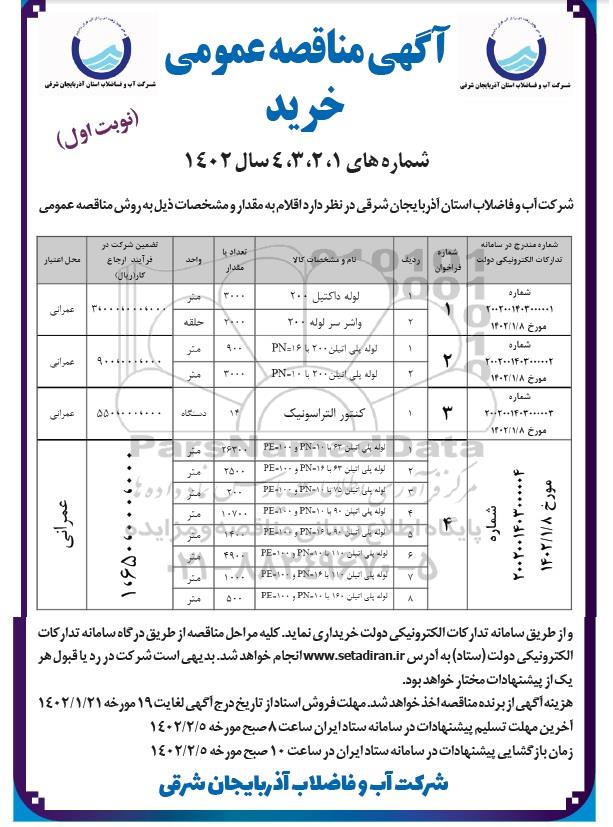 شرکت آب و فاضلاب استان آذربایجان شرقی
شرکت آب و فاضلاب استان آذربایجان شرقی
آگهی مناقصه عمومی
خرید
(نوبت اول)
شماره های ۱، ۲، ۳، ۴ سال ۱۴۰۲
شرکت آب و فاضلاب استان آذربایجان شرقی در نظر دارد اقلام به مقدار و مشخصات ذیل به روش مناقصه عمومی
شماره مندرج در سامانه تدارکات الکترونیکی دولت | شماره فراخوان | ردیف | نام و مشخصات کالا | تعداد یا مقدار | واحد | تضمین شرکت در فرآیند ارجاع کار(ریال) | محل اعتبار
شماره ۲۰۰۲۰۰۱۴۰۳۰۰۰۰۰۱ مورخ ۱۴۰۲/۱/۸ | ۱ | ۱ | لوله داکتیل ۲۰۰ | ۳۰۰۰ | متر | ۳،۰۰۰،۰۰۰،۰۰۰ | عمرانی
۲ | واشر سر لوله ۲۰۰ | ۲۰۰۰ | حلقه
شماره ۲۰۰۲۰۰۱۴۰۳۰۰۰۰۰۲ مورخ ۱۴۰۲/۱/۸ | ۲ | ۱ | لوله پلی اتیلن ۲۰۰ با PN=۱۶ | ۹۰۰ | متر | ۹۰۰،۰۰۰،۰۰۰ | عمرانی
۲ | لوله پلی اتیلن ۲۰۰ با PN=۱۰ | ۳۰۰۰ | متر
شماره ۲۰۰۲۰۰۱۴۰۳۰۰۰۰۰۳ مورخ ۱۴۰۲/۱/۸ | ۳ | ۱ | کنتور التراسونیک | ۱۴ | دستگاه | ۵۵۰،۰۰۰،۰۰۰ | عمرانی
شماره ۲۰۰۲۰۰۱۴۰۳۰۰۰۰۰۴ مورخ ۱۴۰۲/۱/۸ | ۴ | ۱ | لوله پلی اتیلن ۶۳ با PN=۱۰ و PE=۱۰۰ | ۲۶۳۰۰ | متر | ۱،۶۵۰،۰۰۰،۰۰۰ | عمرانی
۲ | لوله پلی اتیلن ۶۳ با PN=۱۶ و PE=۱۰۰ | ۲۵۰۰ | متر
۳ | لوله پلی اتیلن ۷۵ با PN=۱۰ و PE=۱۰۰ | ۲۰۰ | متر
۴ | لوله پلی اتیلن ۹۰ با PN=۱۰ و PE=۱۰۰ | ۱۰۷۰۰ | متر
۵ | لوله پلی اتیلن ۹۰ با PN=۱۶ و PE=۱۰۰ | ۱۴۰۰ | متر
۶ | لوله پلی اتیلن ۱۱۰ با PN=۱۰ و PE=۱۰۰ | ۴۹۰۰ | متر
۷ | لوله پلی اتیلن ۱۱۰ با PN=۱۶ و PE=۱۰۰ | ۱۰۰۰ | متر
۸ | لوله پلی اتیلن ۱۶۰ با PN=۱۰ و PE=۱۰۰ | ۵۰۰ | متر
ParsNamadData
پایگاه اطلاع رسانی مناقصه و مزایده
۰۲۱-۸۸۳۴۹۶۷۰-۵
و از طریق سامانه تدارکات الکترونیکی دولت خریداری نماید. کلیه مراحل مناقصه از طریق درگاه سامانه تدارکات
الکترونیکی دولت (ستاد) به آدرس www.setadiran.ir انجام خواهد شد. بدیهی است شرکت در رد یا قبول هر
یک از پیشنهادات مختار خواهد بود.
هزینه آگهی از برنده مناقصه اخذ خواهد شد. مهلت فروش اسناد از تاریخ درج آگهی لغایت ۱۹ مورخه ۱۴۰۲/۱/۲۱
آخرین مهلت تسلیم پیشنهادات در سامانه ستاد ایران ساعت ۸ صبح مورخه ۱۴۰۲/۲/۵
زمان بازگشایی پیشنهادات در سامانه ستاد ایران در ساعت ۱۰ صبح مورخه ۱۴۰۲/۲/۵
شرکت آب و فاضلاب آذربایجان شرقی